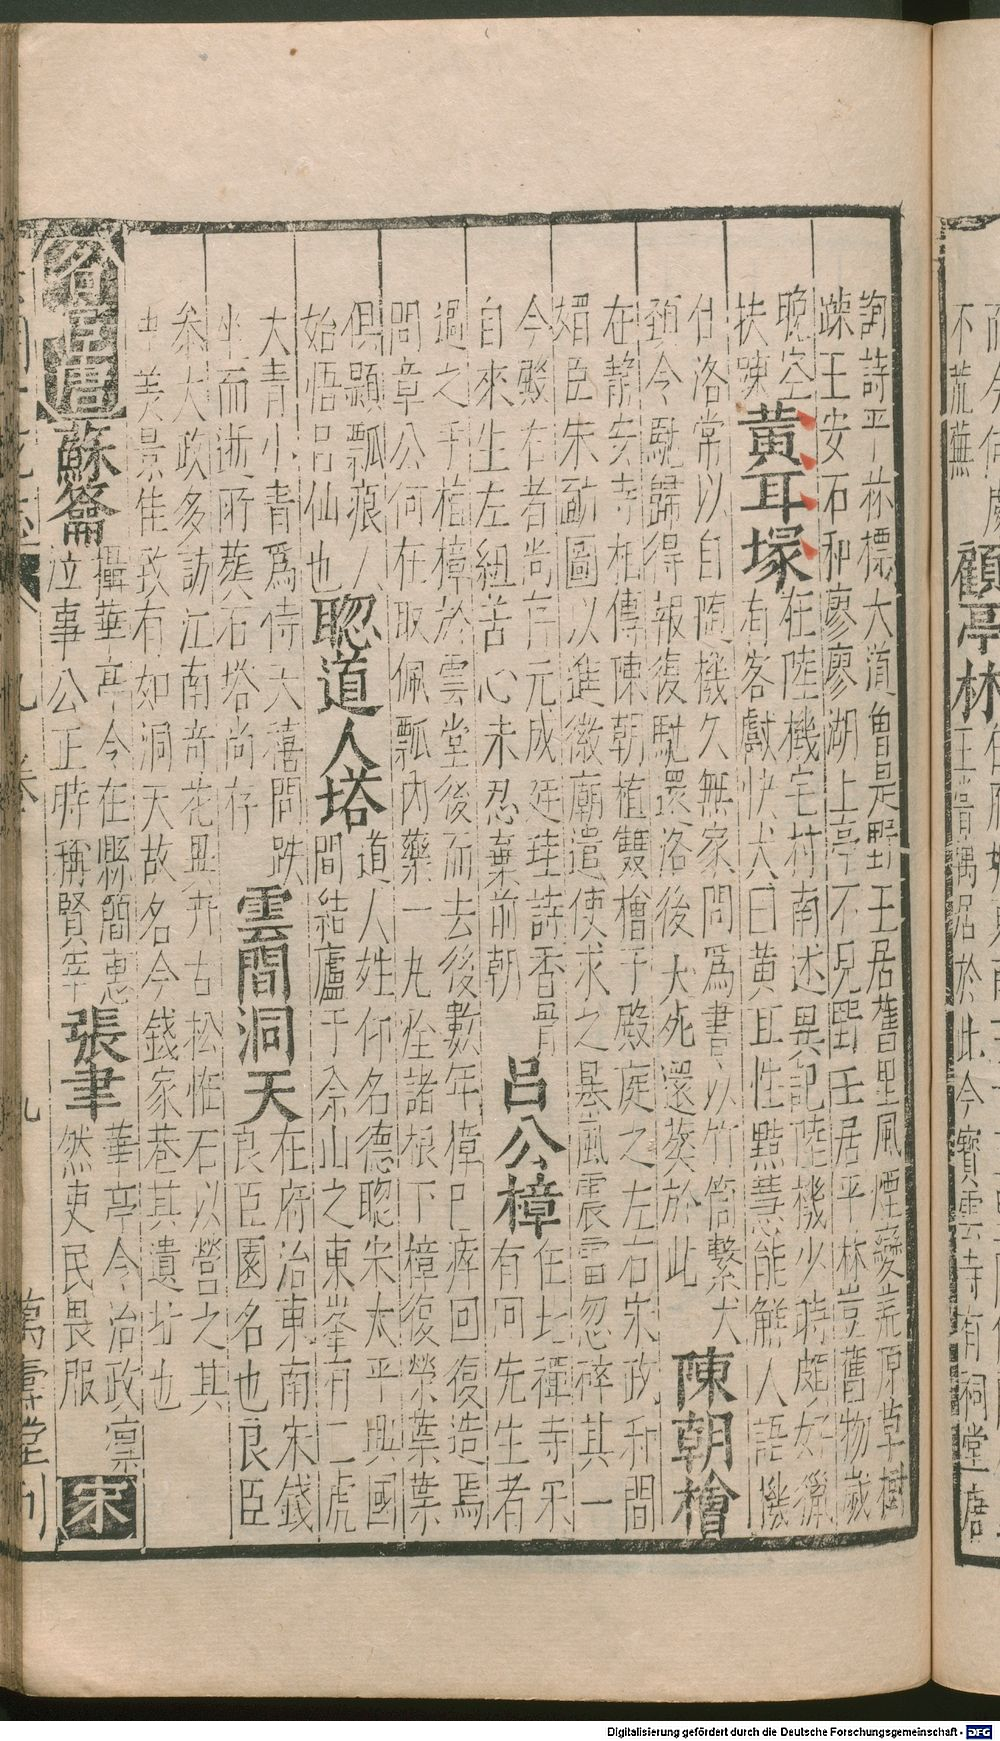 不荒蕪
顧亭林
王嘗偶居於此今寶雲寺有祠堂唐
詢詩云 林標大道曾是野王居舊里風煙變荒原草樹
踈王安石和寥寥湖上亭不見野王居平林豈舊物歲
晚空
扶踈
黃耳塚
在陸機宅村南述異記陸機少時頗好獵
有客獻快犬曰黃耳性黠慧能解人語機
仕洛常以自隨機久無家問為書以竹筒繫犬
頚令馳歸得報復馳還洛後犬死還葬於此
陳朝檜
在静安寺相傳陳朝植雙檜于殿庭之左右宋政和間
臣朱勔圖以進徽廟遣使求之暴風震雷忽碎其一
今右者尚存元成廷珪詩香骨
自來生左紐苦心未忍棄前朝
呂公樟
在北禪寺宋
有同先生者
過之手植樟於雲堂後而去後數年樟已瘁回復造焉
問章公何在取佩瓢内藥一丸栓諸根下樟復榮葉葉
俱顯瓢痕人
始悟呂仙也
聦道人塔
道人姓仰名德聦宋太平興國
間結廬于佘山之東峯有二虎
大青小青為侍天禧間趺
坐而逝所葬石塔尚存
雲間洞天
在府治東南宋錢
良臣園名也良臣
叅大政多訪江南奇花異卉古松恠石以營之其
中美景佳致有如洞天故名今錢家巷其遺址也
名宦唐
蘇籥
攝華亭今在縣簡惠
泣事公正時稱賢宰
張聿
華亭令治政凜
然吏民畏服
宋
九卷
九
萬壽堂刊
Digitalisierung gefördert durch die Deutsche Forschungsgemeinschaft - DFG